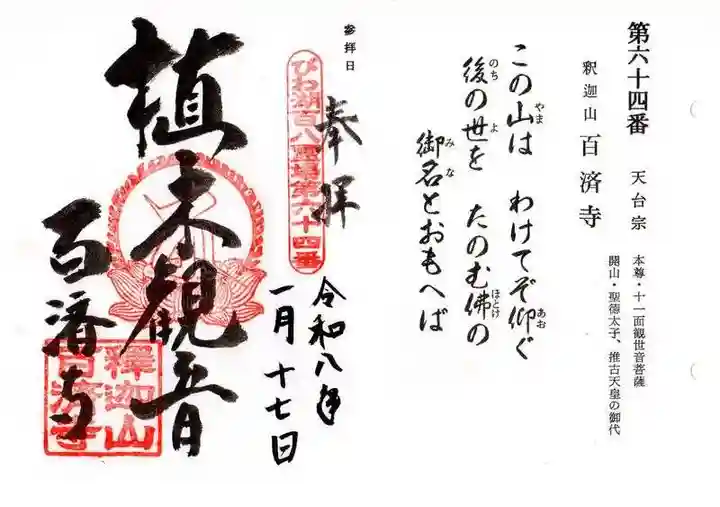 第六十四番 天台宗
釈迦山 百済寺
本尊・十一面観世音菩薩
開山・聖徳太子、推古天皇の御代
この山は わけてぞ仰ぐ
やま あお
後の世を たのむ佛の
のち よ ほとけ
御名とおもへば
みな
参拝日
奉拝
びわ湖百八霊場第六十四番
令和八年
一月十七日
植木観音
百済寺
釋迦山
百済寺